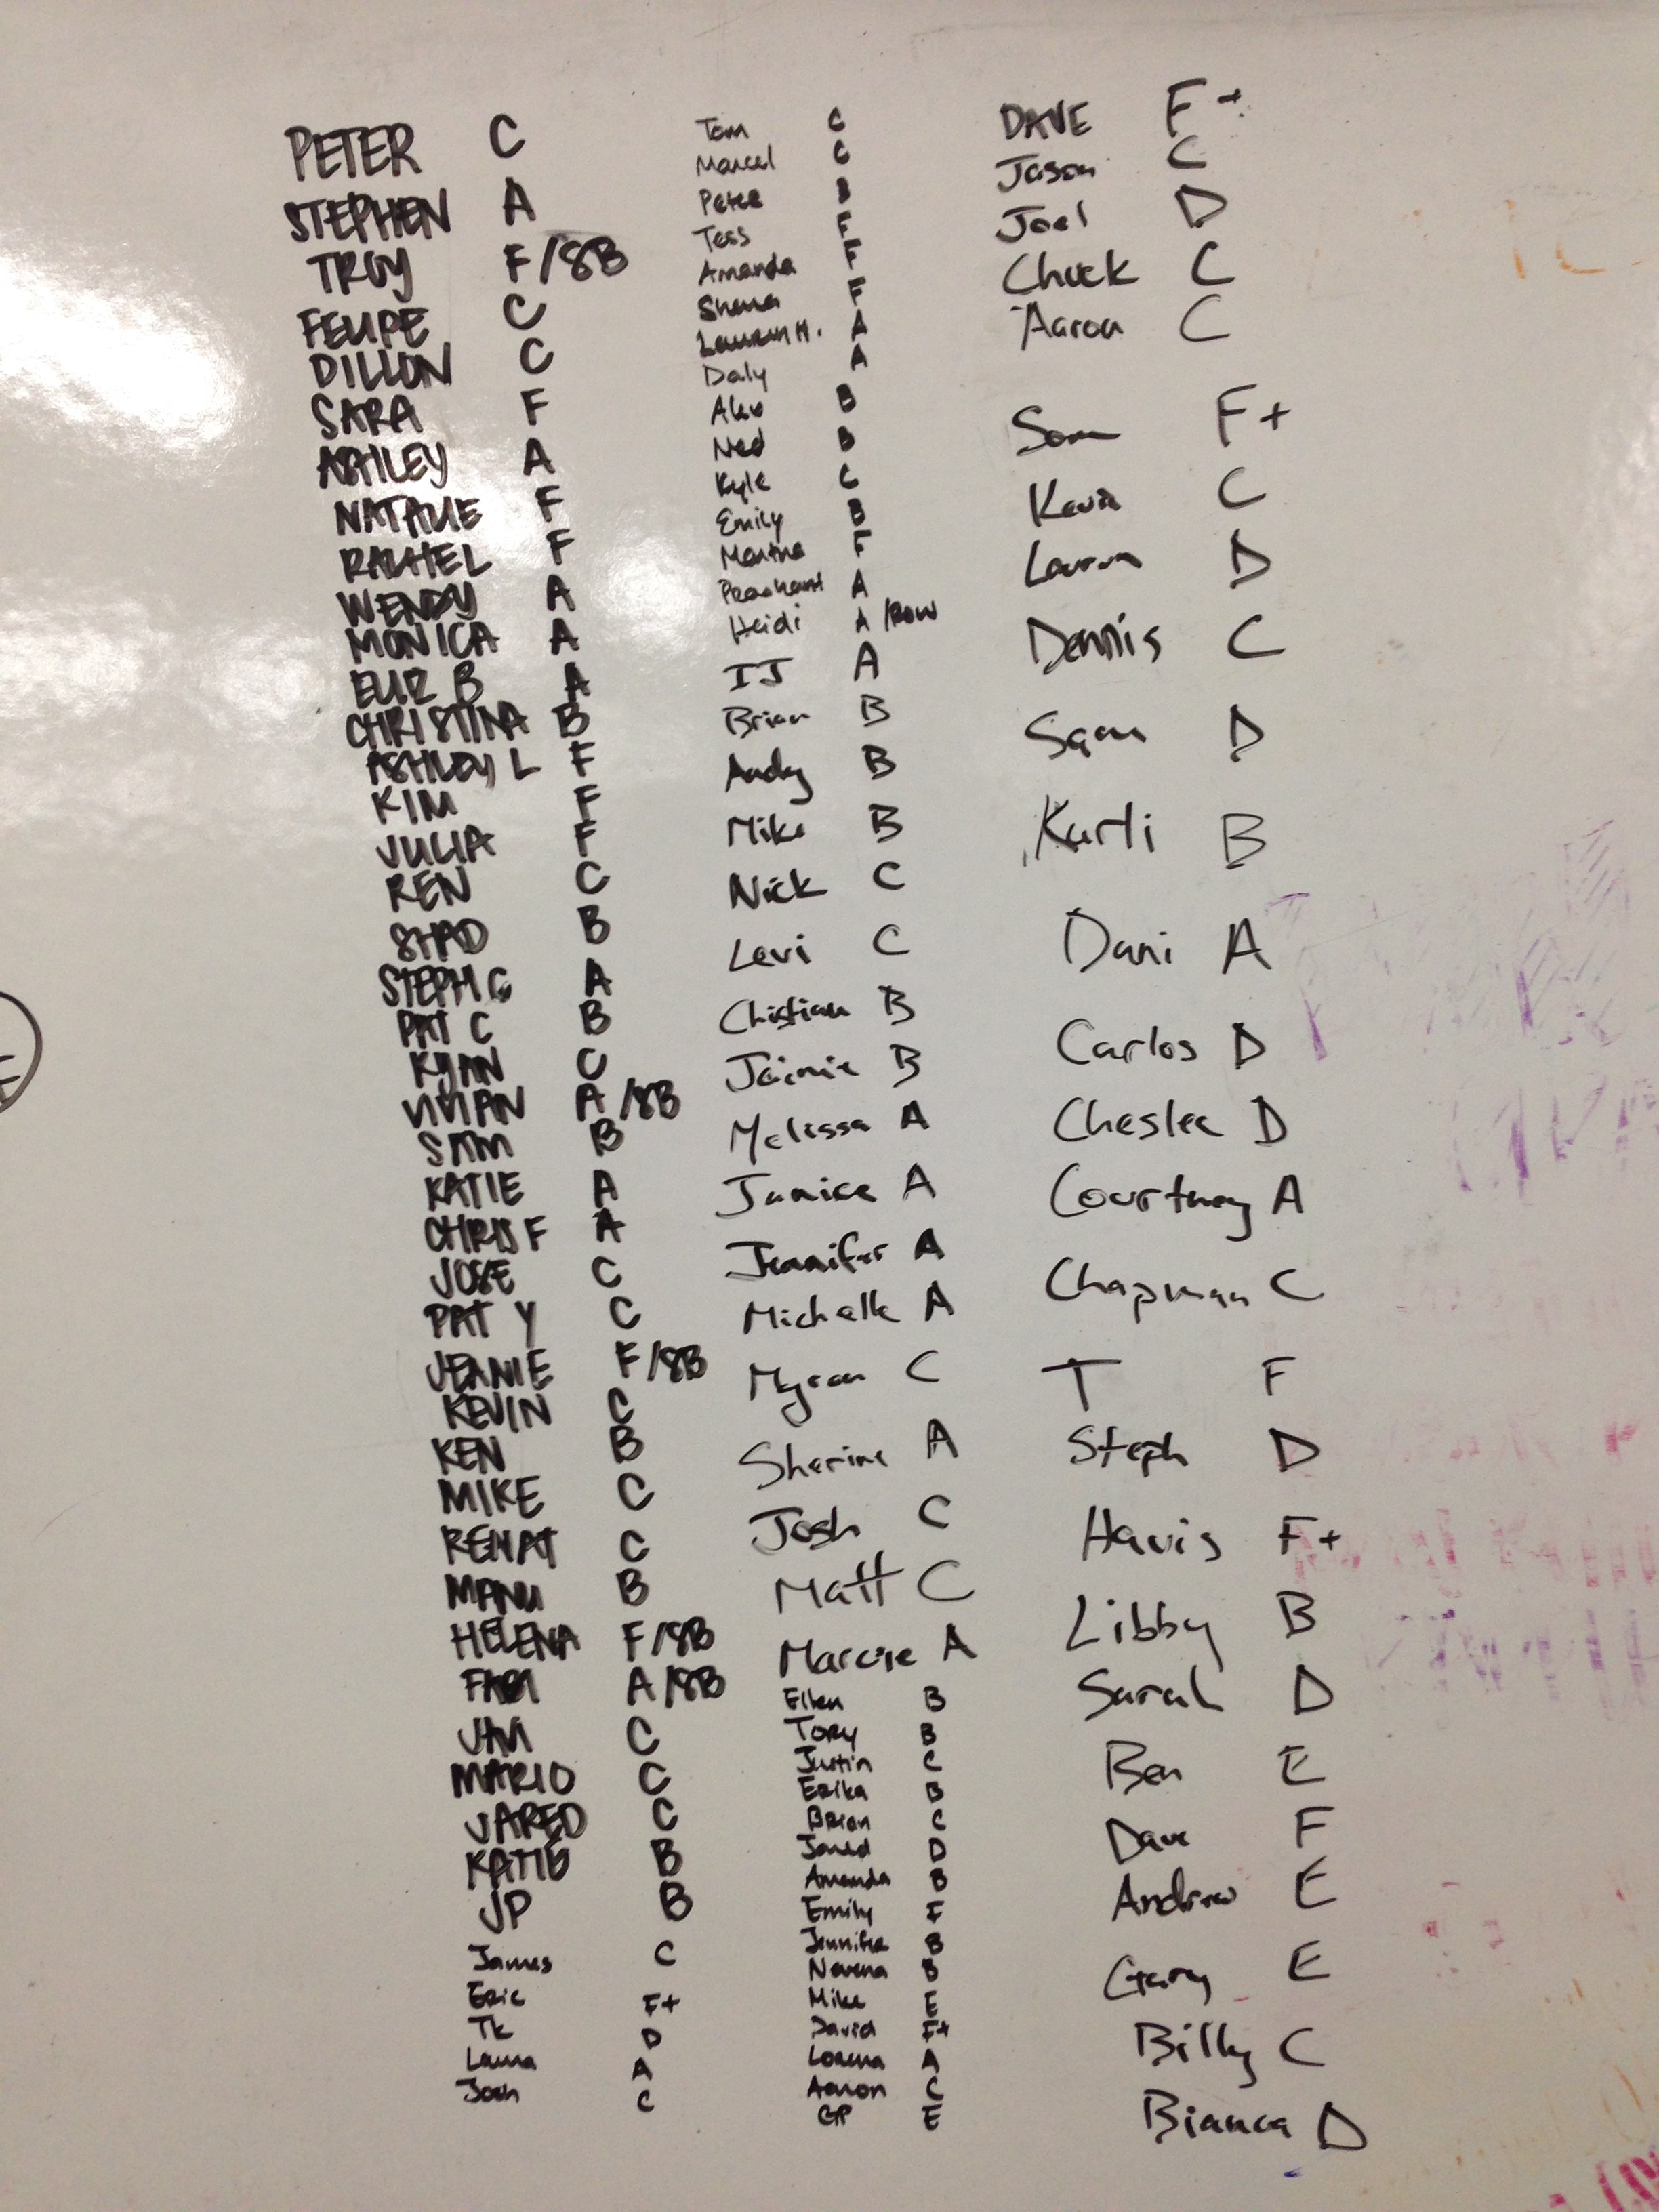 PETER C
STEPHEN A
TROY F/8B
FELIPE C
DILLON C
SARA F
ASHLEY A
NATALIE F
RACHEL F
WENDY A
MONICA A
ELIZ B A
CHRISTINA B
ASHLEY L F
KIM F
JULIA F
REN C
SHAD B
STEPH C A
PAT C B
RYAN C
VIVIAN A/8B
SAM B
KATIE A
CHRIS F A
JOSE C
PAT Y C
JEANIE F/8B
KEVIN C
KEN B
MIKE C
RENAT C
MANU B
HELENA F/8B
FABI A/8B
C
MARIO C
JARED C
KATIE B
JP B
James C
Eric F+
TK D
Laura A
Josh C
Tom C
Marcel C
Peter B
Tess F
Amanda F
Shana F
Lauren H. A
Daly A
Alex B
Ned B
Kyle C
Emily B
Martha F
Prashant A
Heidi A/ROW
IJ A
Brian B
Andy B
Mike B
Nick C
Levi C
Chistian B
Jaimie B
Melissa A
Janice A
Jennifer A
Michelle A
Myron C
Sherine A
Josh C
Matt C
Marcie A
Ellen B
Tory B
Justin C
Erika B
Brian C
Jared D
Amanda B
Emily F
Jennifer B
Nevena B
Mike E
David F+
Lorena A
Aaron C
GP E
DAVE F+
Jason C
Joel D
Chuck C
Aaron C
Sam F+
Kevin C
Lauren D
Dennis C
Sam D
Karli B
Dani A
Carlos D
Cheslee D
Courtney A
Chapman C
T F
Steph D
Havis F+
Libby B
Sarah D
Ben E
Dave F
Andrew E
Gary E
Billy C
Bianca D